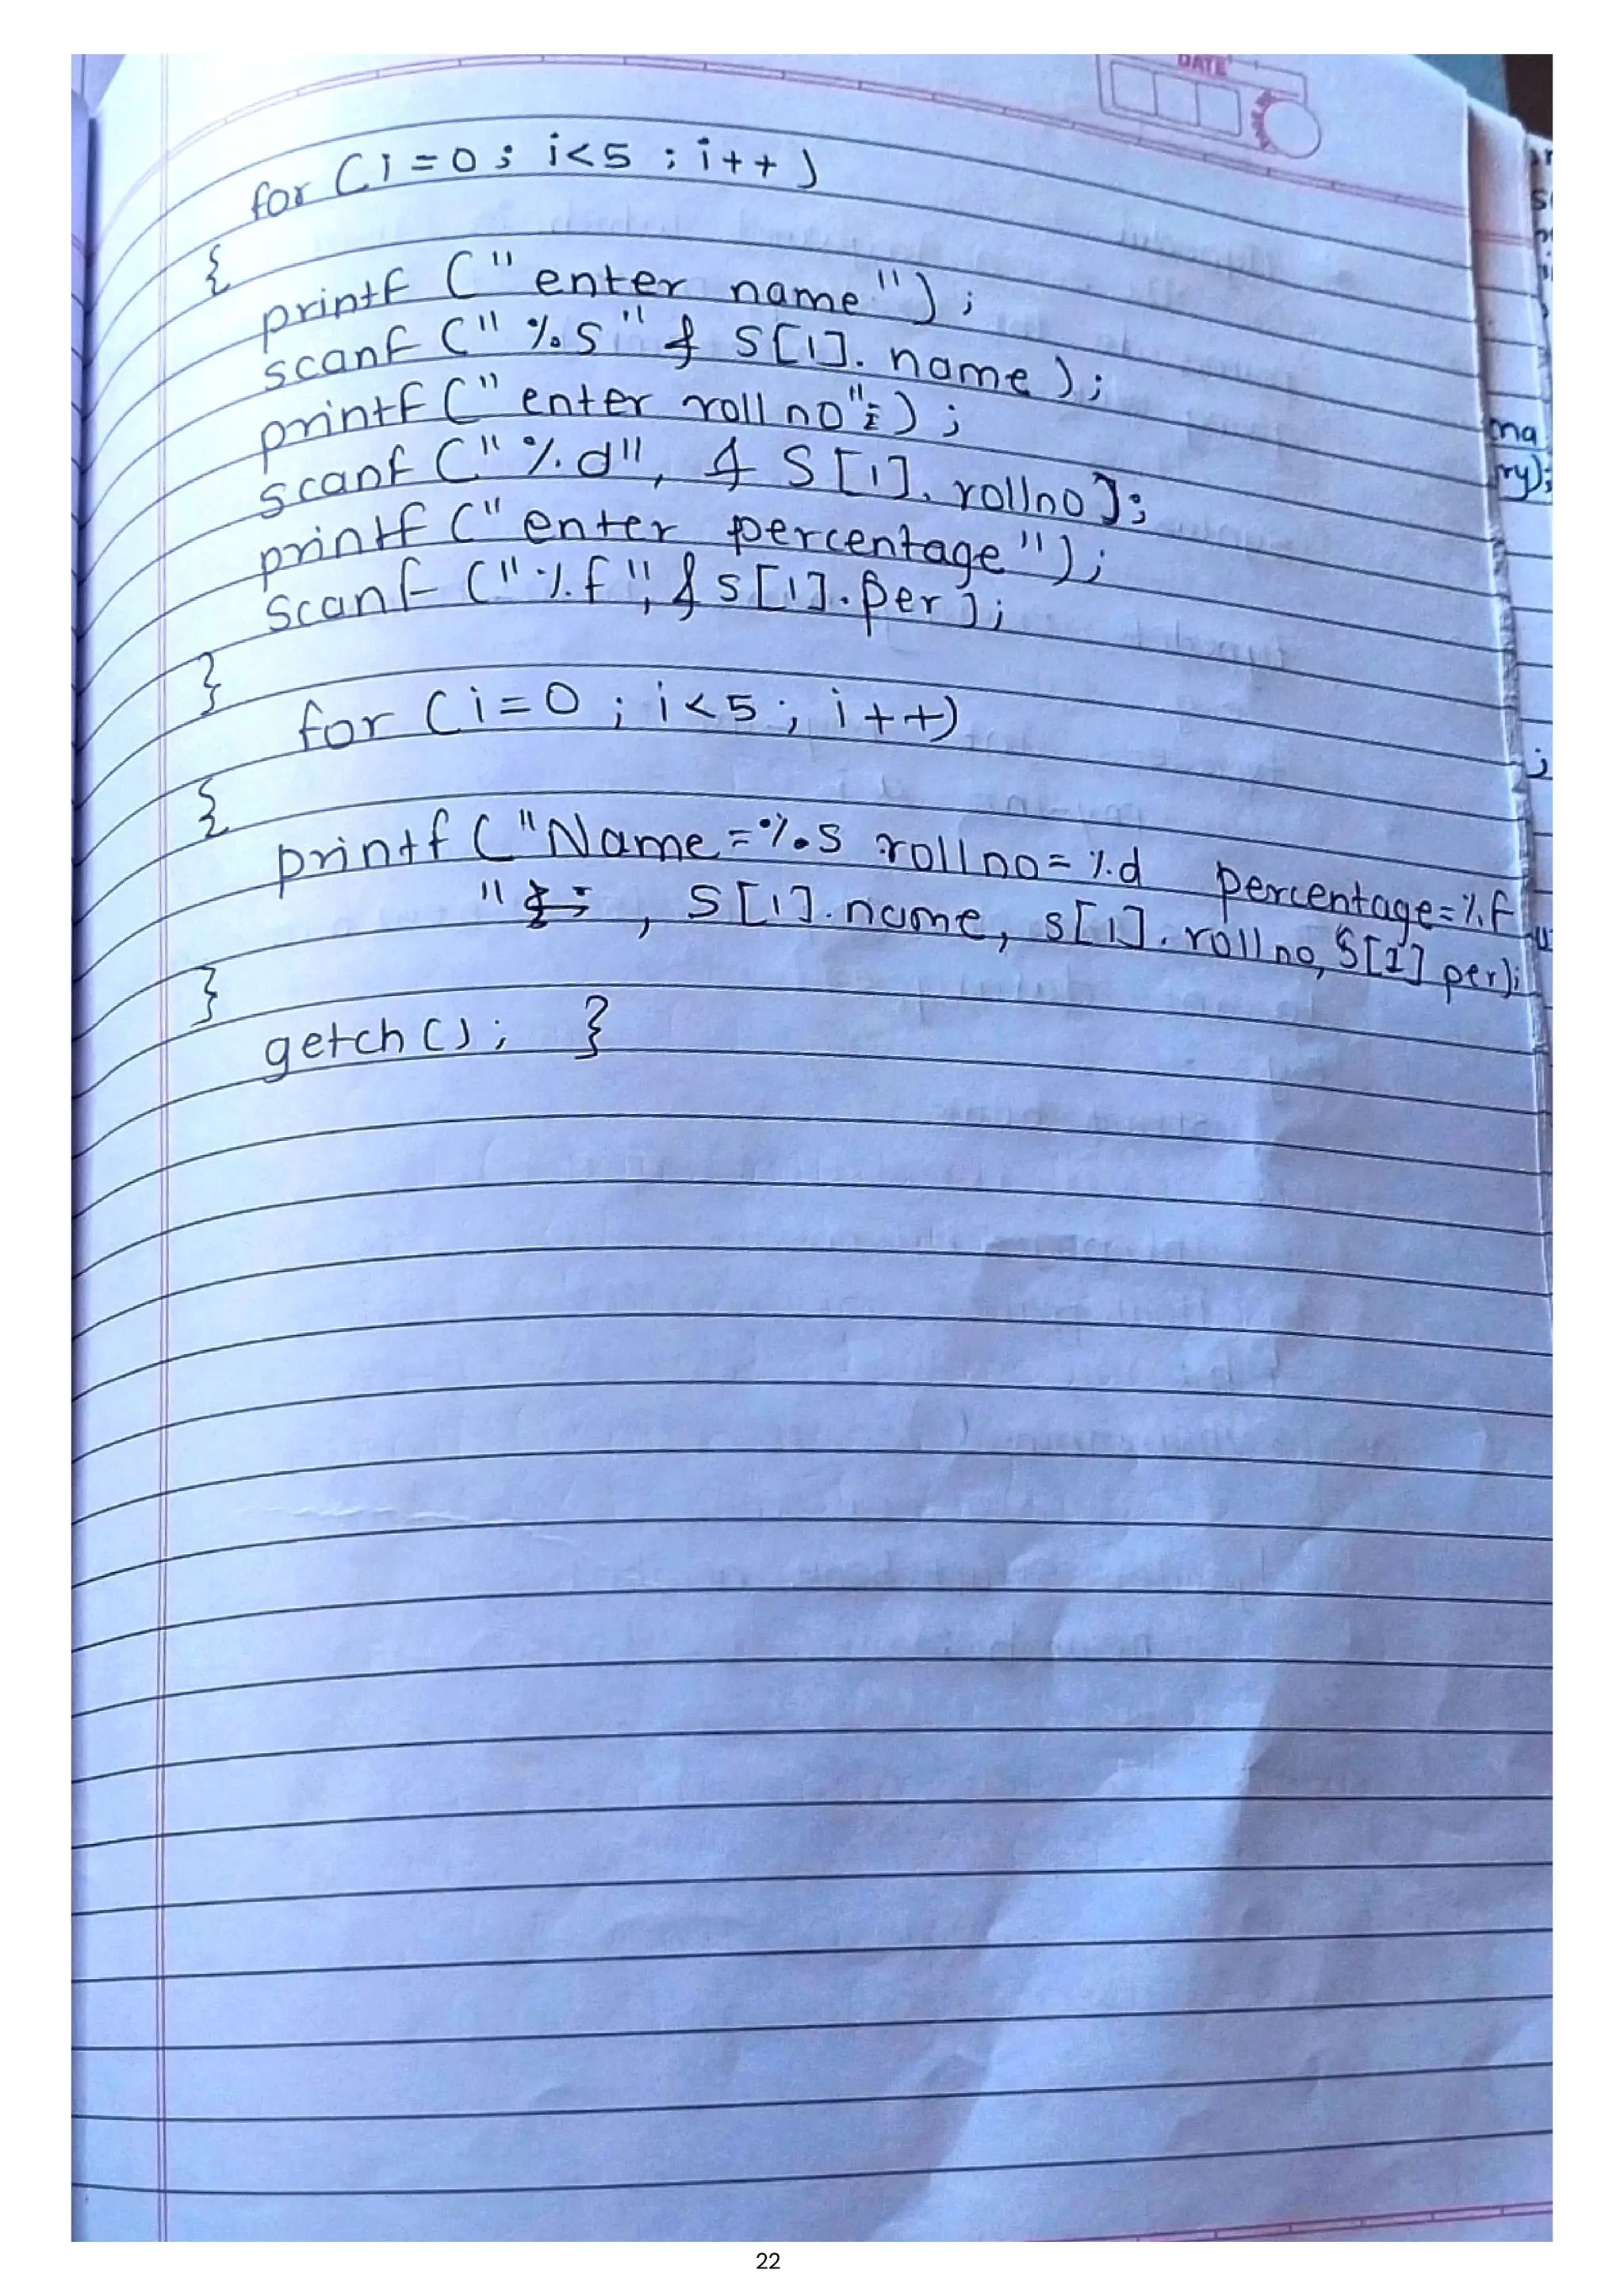 DATE
for (i=0; i<5 ; i++)
{
printf ("enter name");
scanf ("%s" & s[i]. name);
printf ("enter roll no");
scanf ("%d", & s[i]. rollno);
printf ("enter percentage");
scanf ("%f", & s[i].per);
}
for (i=0 ; i<5 ; i++)
{
printf ("Name=%s rollno=%d percentage=%f
" , s[i].name, s[i].rollno, s[i] per);
}
getch(); }
ma
ry);
;
22